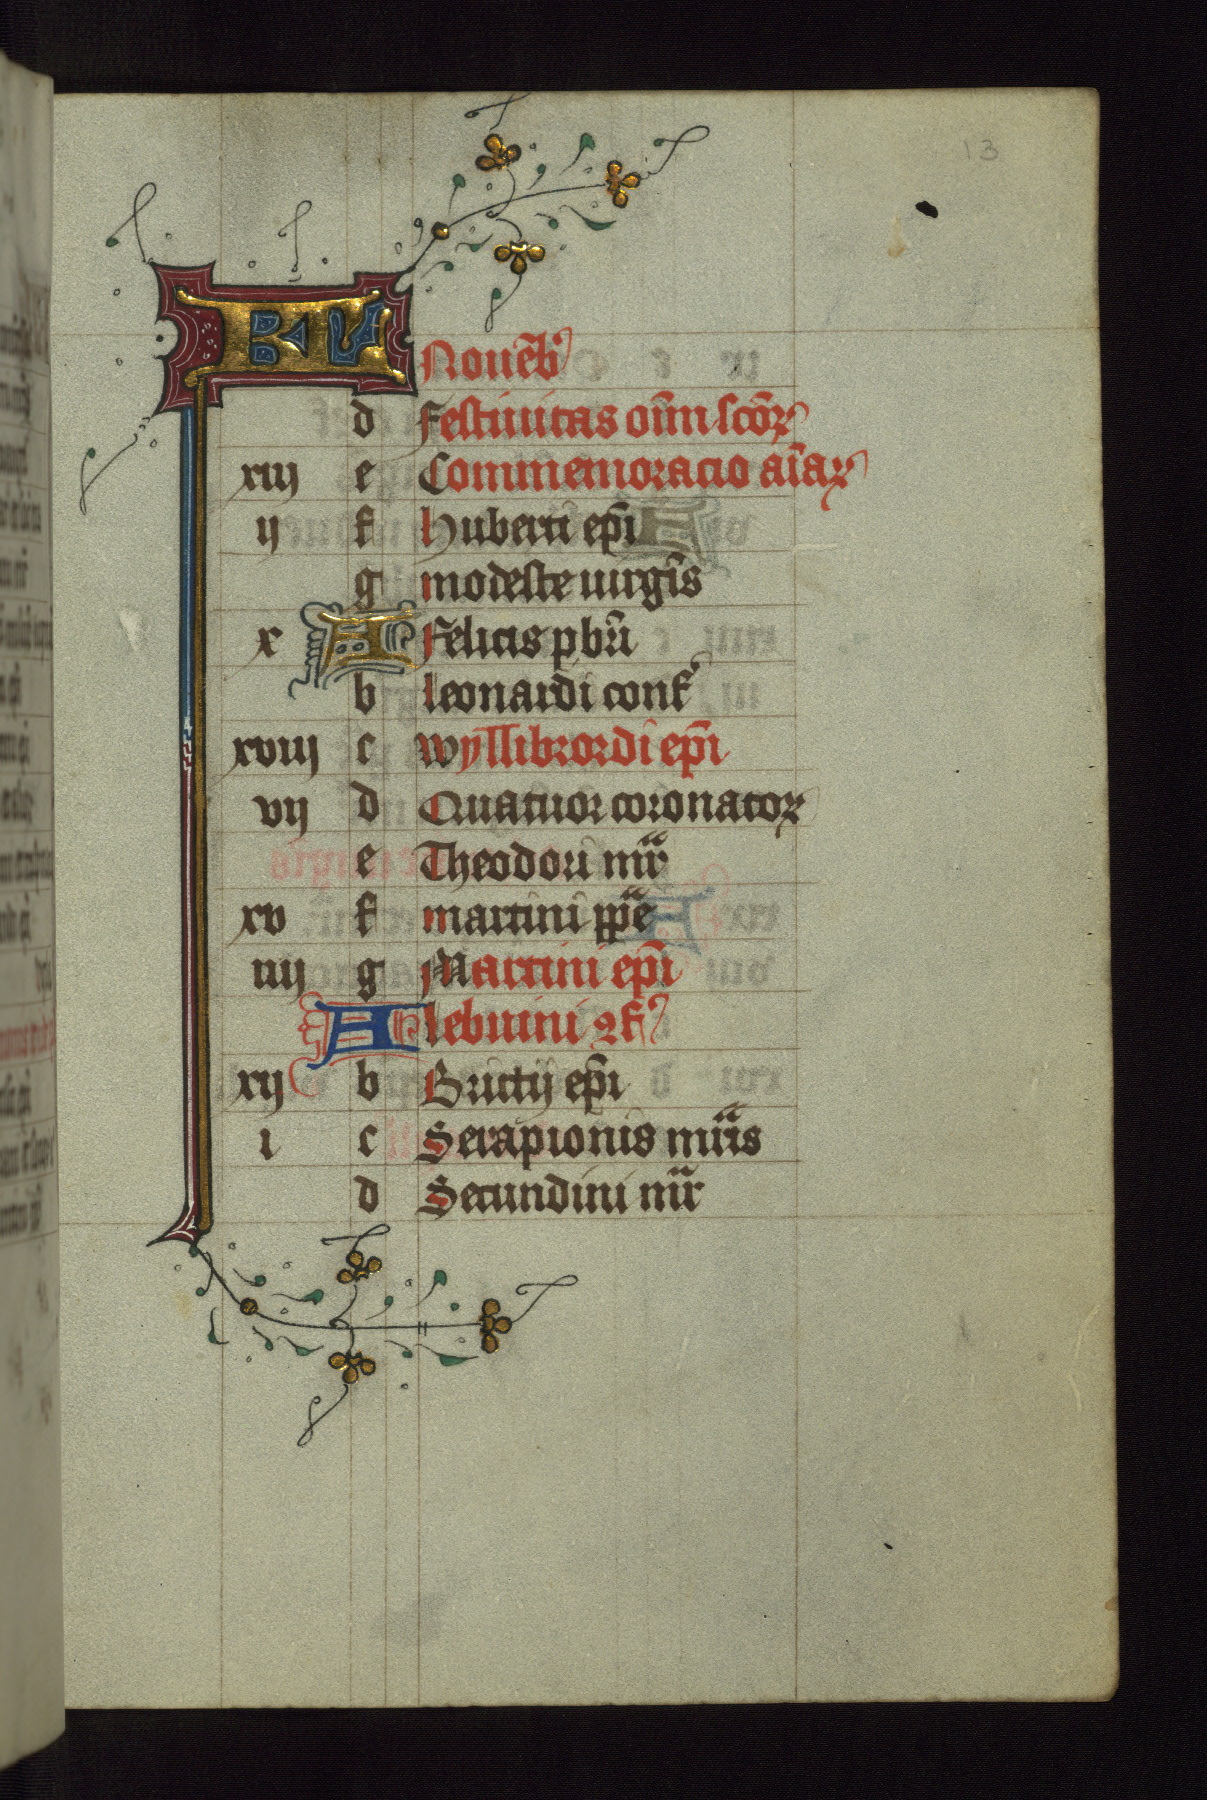 13
KL Nouēb'
d Festiuitas oīm scōꝝ
xiij e Commemoracio aīaꝝ
ij f huberti ep̄i
g modeste uirgīs
x A Felicis pb̄ri
b leonardi conf'
xviij c wyllibrordi ep̄i
vij d Quatuor coronatoꝝ
e Theodori mr̄
xv f martini pp̄e
iiij g Martini ep̄i
A lebuini ꝯf'
xij b Brictij ep̄i
i c Serapionis mr̄is
d Secundini mr̄